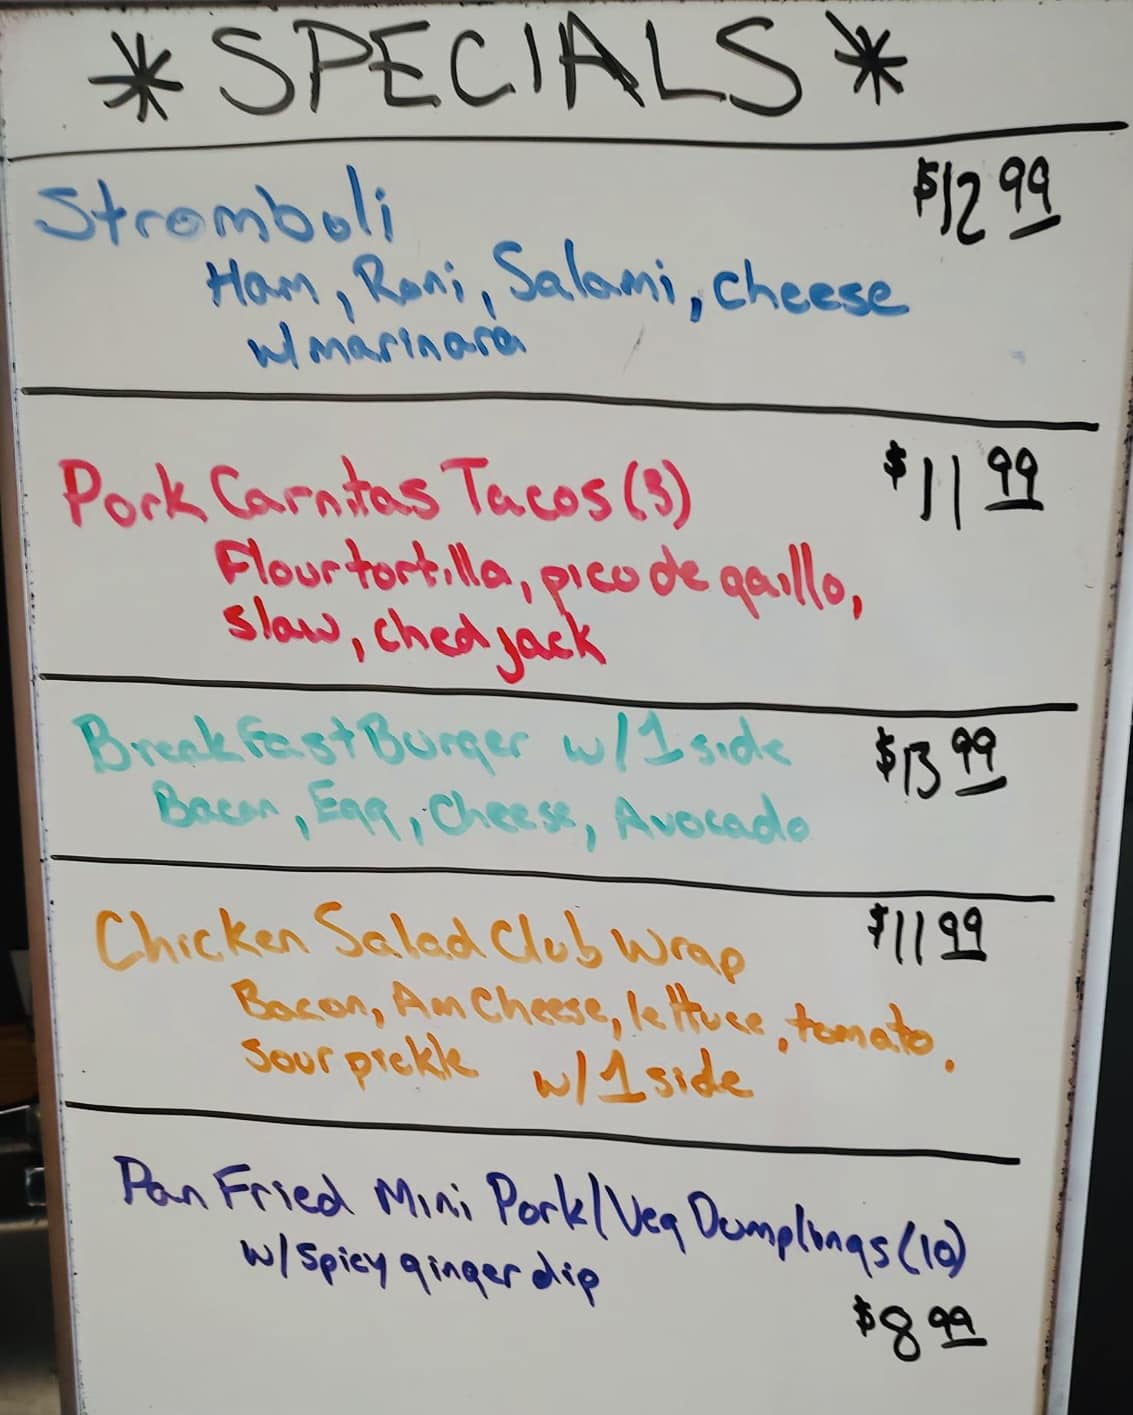 * SPECIALS *
Stromboli $12.99
Ham, Roni, Salami, cheese
w/marinara
Pork Carnitas Tacos (3) $11.99
Flour tortilla, pico de gaillo,
slaw, ched jack
Breakfast Burger w/1 side $13.99
Bacon, Egg, Cheese, Avocado
Chicken Salad Club Wrap $11.99
Bacon, Am Cheese, lettuce, tomato.
Sour pickle w/1 side
Pan Fried Mini Pork/Veg Dumplings (10)
w/spicy ginger dip
$8.99